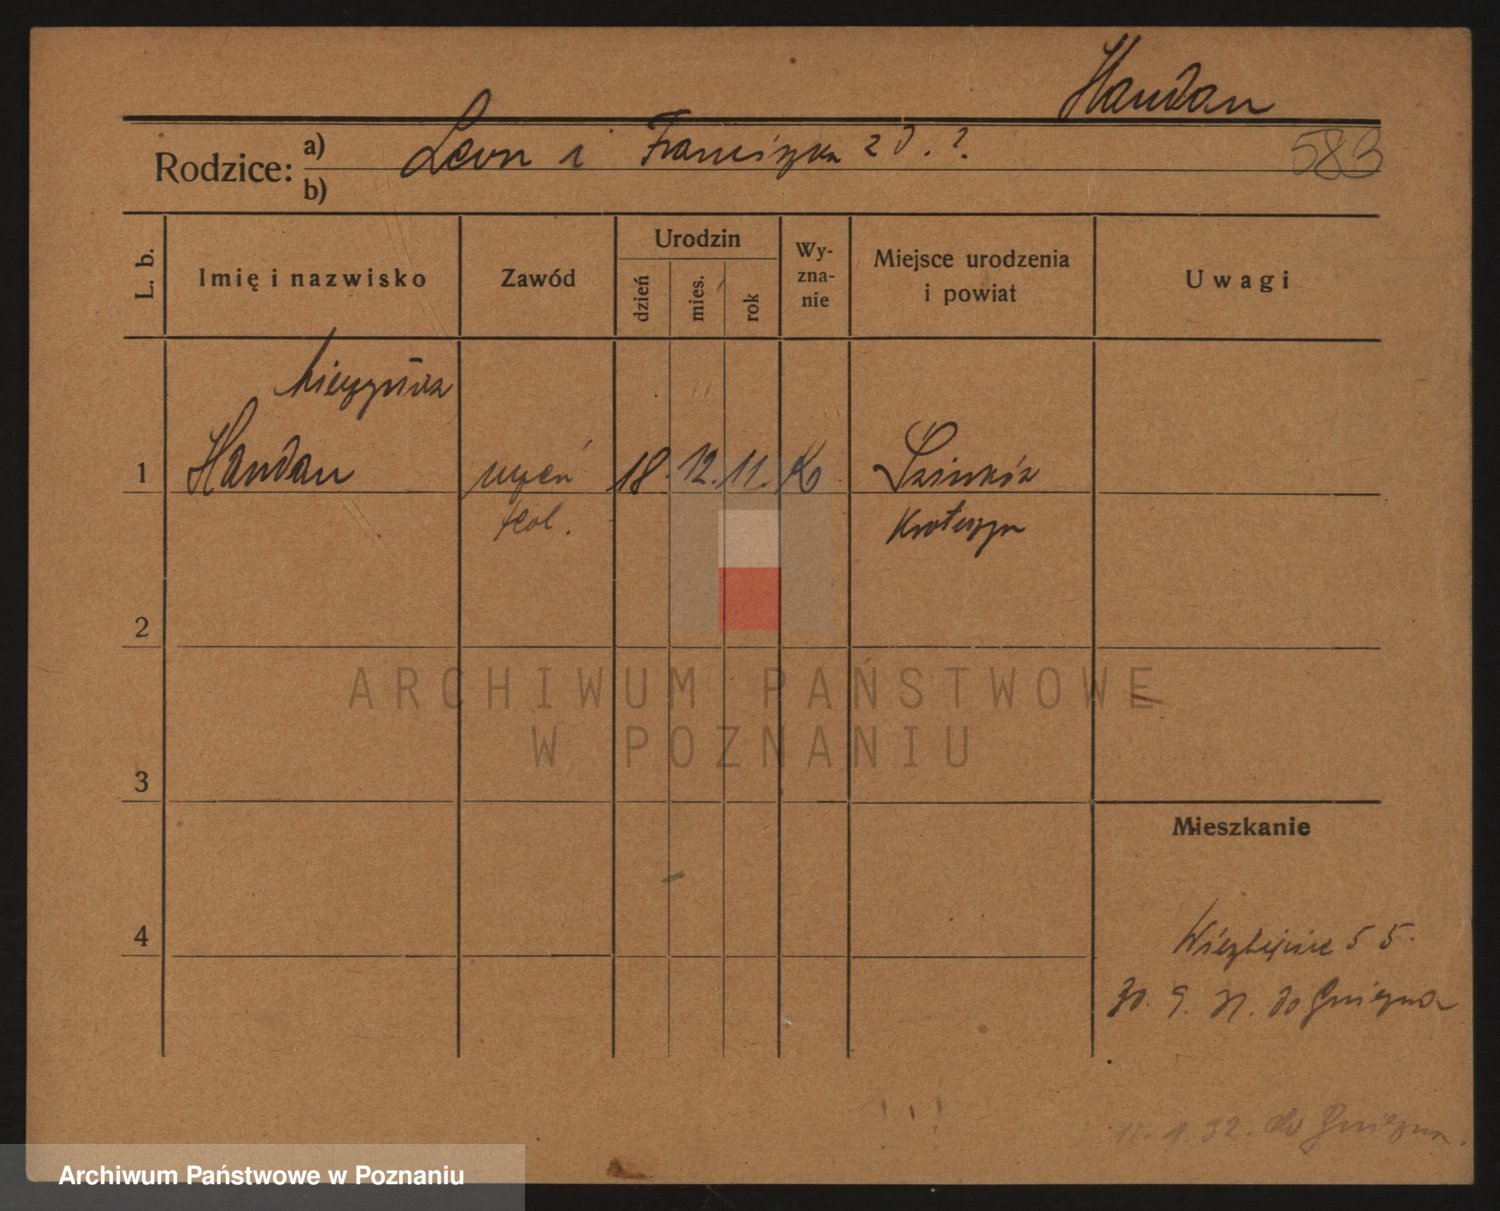 Handan
583
Rodzice: a) Leon i Franciszka z d. ?
b)
L. b.
Imię i nazwisko
Zawód
Urodzin
dzień
mies.
rok
Wy-
zna-
nie
Miejsce urodzenia
i powiat
Uwagi
1
Handan
uczeń
18. 12. 11. K
Krotoszyn
2
ARCHIWUM PAŃSTWOWE
W POZNANIU
3
Mieszkanie
4
55.
30. 9. 31. do Gniezna
1. 32. do Gniezna.
Archiwum Państwowe w Poznaniu